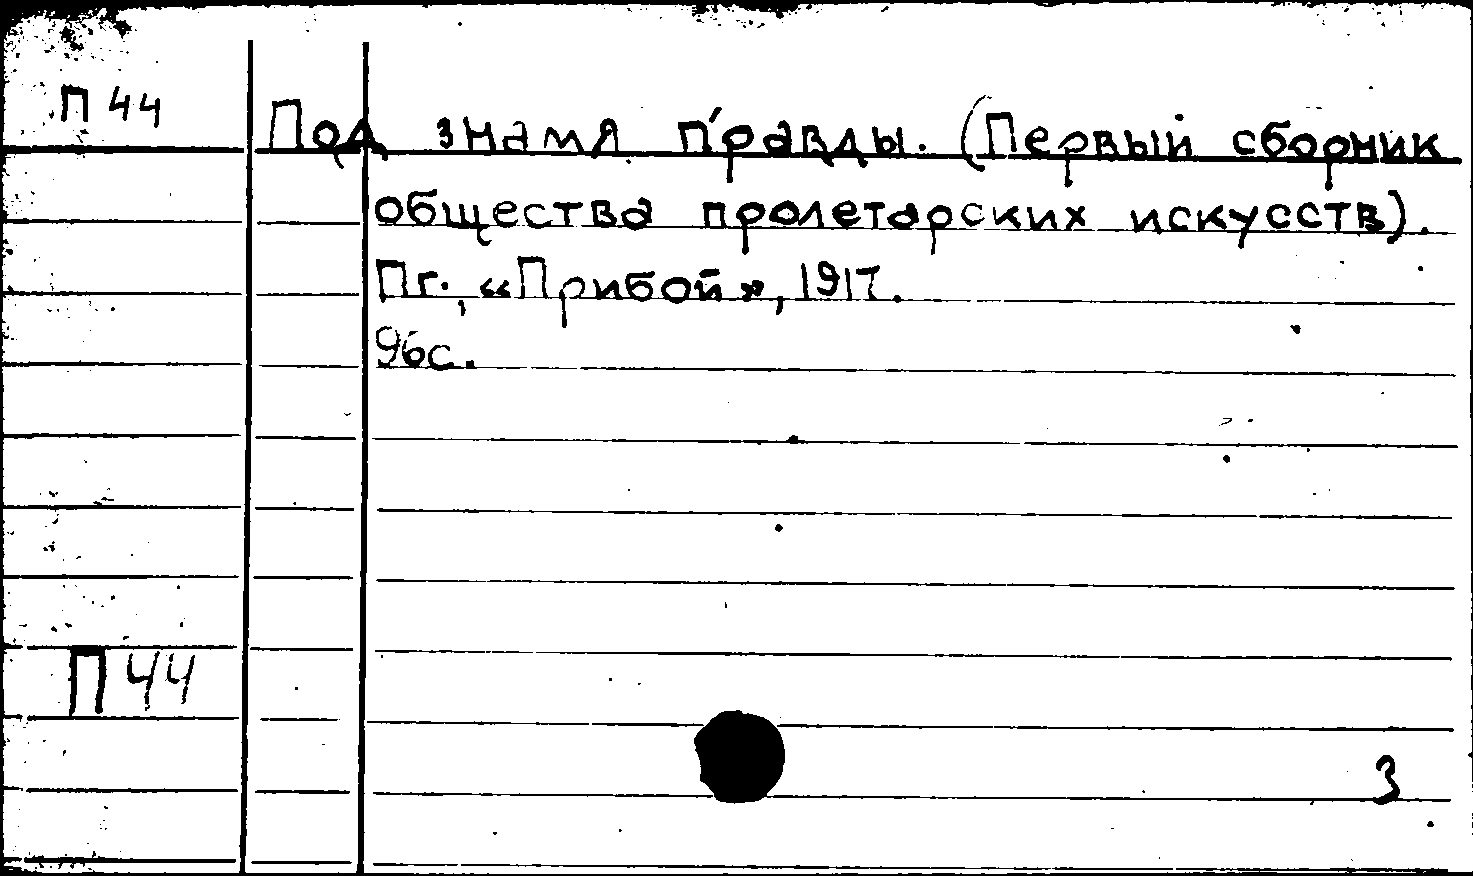 П 44
Под знамя правды. (Первый сборник
общества пролетарских искусств).
Пг., «Прибой», 1917.
96с.
П 44
3